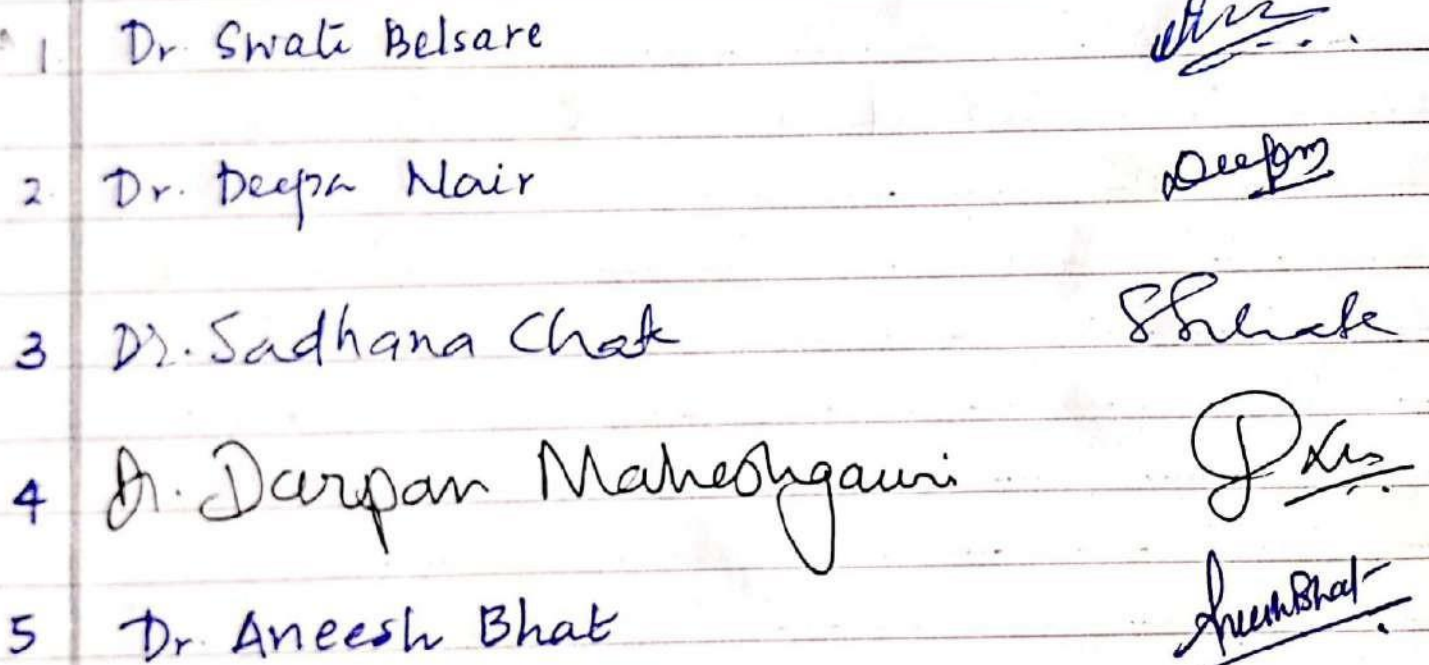 1 Dr. Swati Belsare
2 Dr. Deepa Nair Deepa
3 Dr. Sadhana Chak
4 Dr. Darpan Maheshgauri
5 Dr. Aneesh Bhat Aneesh Bhat